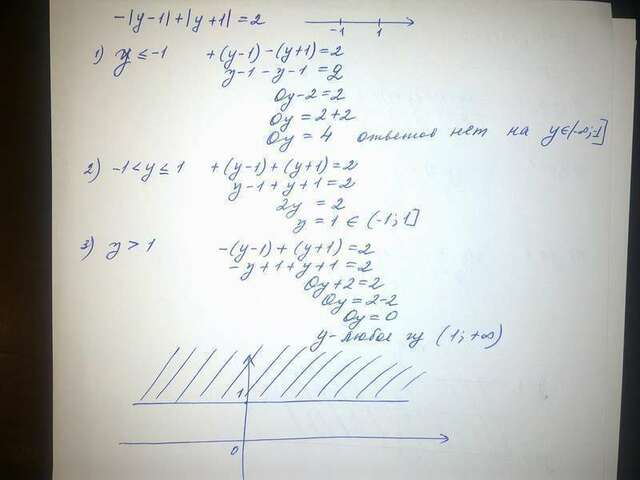 -|y-1|+|y+1|=2
-1 1
1) y ≤ -1 +(y-1)-(y+1)=2
y-1-y-1=2
0y-2=2
0y=2+2
0y=4 ответов нет на y∈(-∞;-1]
2) -1<y≤1 +(y-1)+(y+1)=2
y-1+y+1=2
2y=2
y=1∈(-1;1]
3) y>1 -(y-1)+(y+1)=2
-y+1+y+1=2
0y+2=2
0y=2-2
0y=0
y-любое из (1;+∞)
1
0